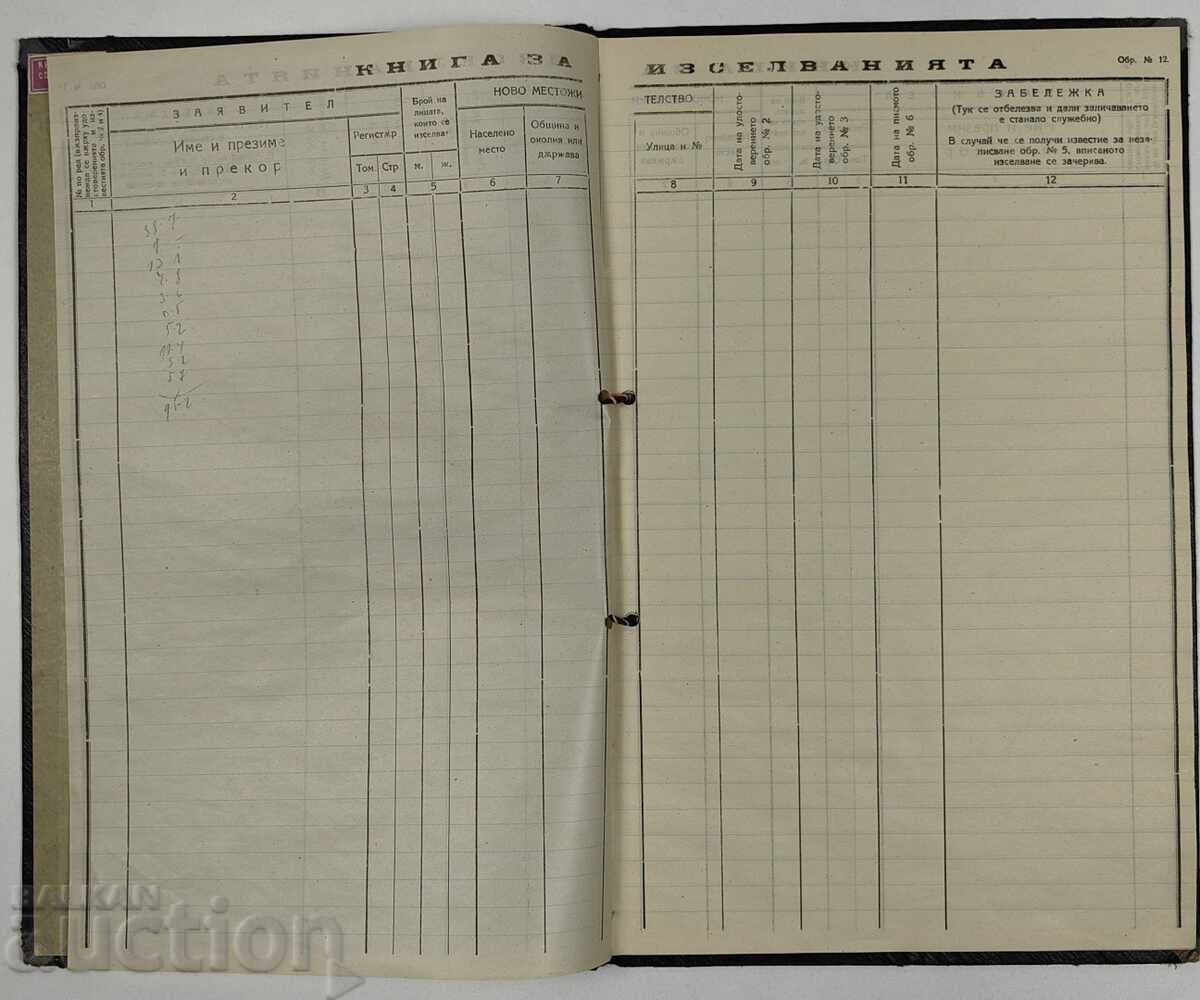 КНИГА ЗА ИЗСЕЛВАНИЯТА
Обр. № 12.
ЗАЯВИТЕЛ
Име и презиме
и прекор
Регистѫр
Том.
Стр
Брой на
лицата,
които се
изселват
м.
ж.
НОВО МЕСТОЖИТЕЛСТВО
Населено
место
Община и
околия или
дѫржава
Улица и №
Дата на удосто-
верението
обр. № 2
Дата на удосто-
верението
обр. № 3
Дата на писмото
обр. № 6
ЗАБЕЛЕЖКА
(Тук се отбелезва и дали заличаването
е станало служебно)
В случай че се получи известие за неза-
писване обр. № 5, вписаното
изселване се зачерква.
1 2 3 4 5 6 7 8 9 10 11 12
5 2
BALKAN
auction